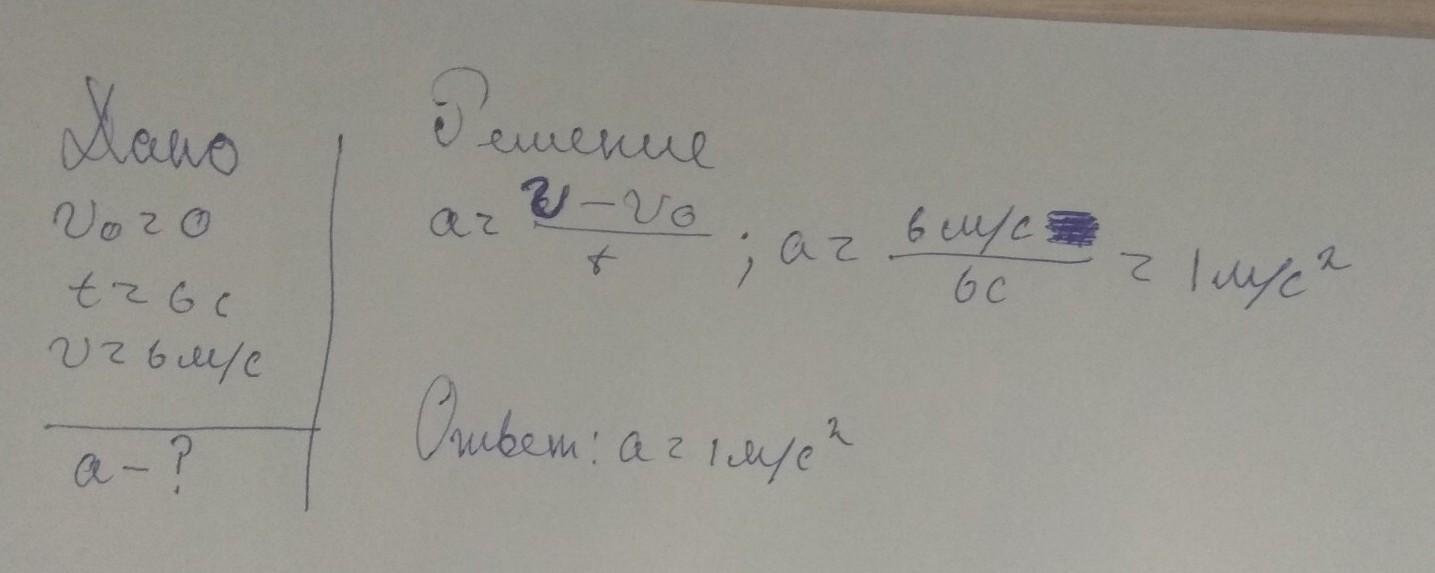 Дано
v₀ = 0
t = 6 с
v = 6 м/с
a - ?
Решение
a = (v - v₀) / t ; a = 6 м/с / 6с = 1 м/с²
Ответ: a = 1 м/с²